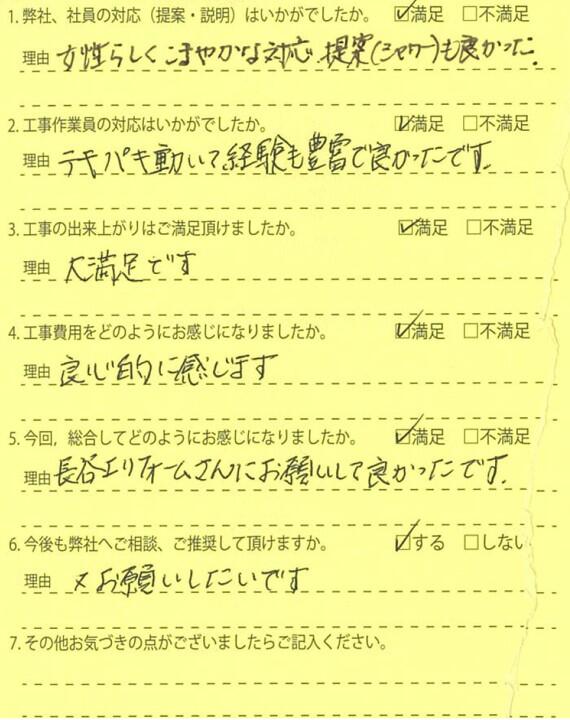 1. 弊社、社員の対応（提案・説明）はいかがでしたか。 ☑満足 □不満足
理由 女性らしくこまやかな対応、提案(シャワー)も良かった。
2. 工事作業員の対応はいかがでしたか。 ☑満足 □不満足
理由 テキパキ動いて経験も豊富で良かったです。
3. 工事の出来上がりはご満足頂けましたか。 ☑満足 □不満足
理由 大満足です
4. 工事費用をどのようにお感じになりましたか。 ☑満足 □不満足
理由 良心的に感じます
5. 今回，総合してどのようにお感じになりましたか。 ☑満足 □不満足
理由 長谷工リフォームさんにお願いして良かったです。
6. 今後も弊社へご相談、ご推奨して頂けますか。 ☑する □しない
理由 又お願いしたいです
7. その他お気づきの点がございましたらご記入ください。